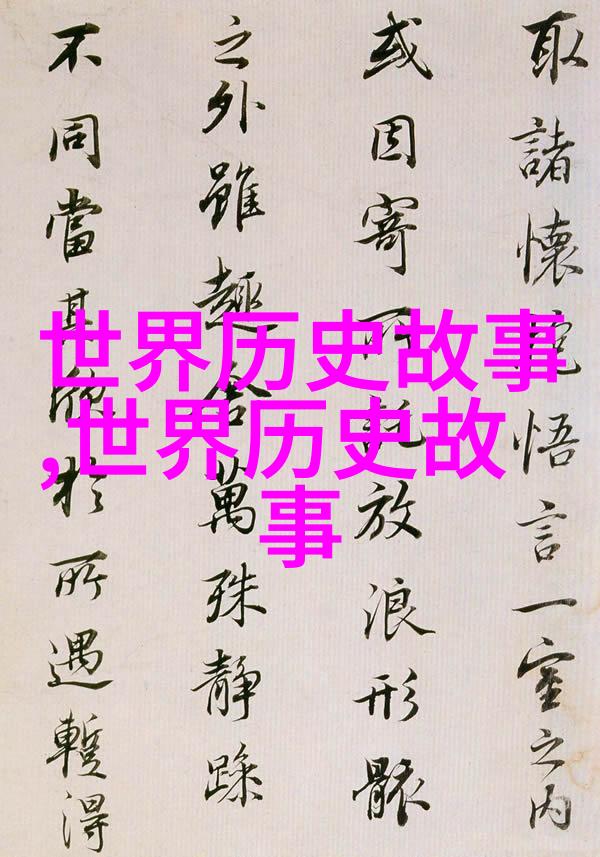 取諸懷抱悟言一室之内
或因寄所託放浪形骸
之外雖趣舍萬殊静躁
不同當其欣於所遇暫得
世界历史故事
,世界历史故
事